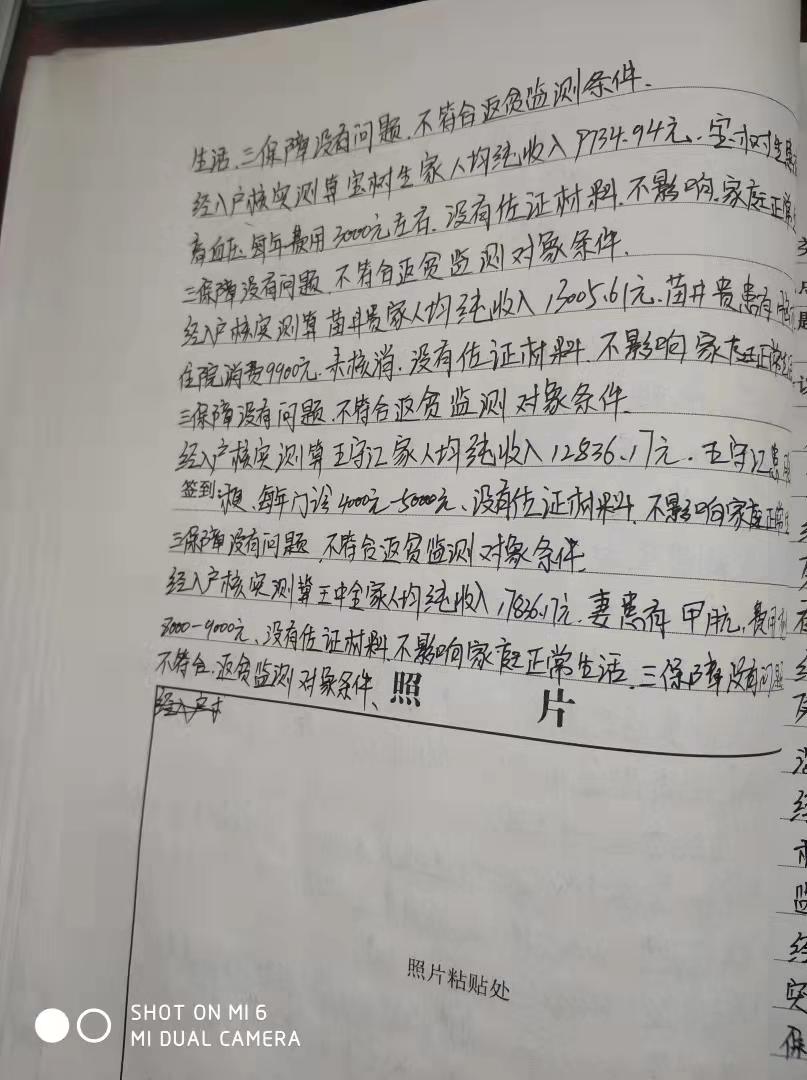 生活、三保障没有问题、不符合返贫监测条件、
经入户核实测算宝树生家人均纯收入9734.94元、宝树生患
高血压、每年费用3000元左右、没有佐证材料、不影响家庭正常
三保障没有问题、不符合返贫监测对象条件、
经入户核实测算苗井贵家人均纯收入13005.61元、苗井贵患有
住院消费9900元、未核消、没有佐证材料、不影响家庭正常生活
三保障没有问题、不符合返贫监测对象条件、
经入户核实测算王守江家人均纯收入12836.17元、王守江患
签到: 每年门诊4000元-5000元、没有佐证材料、不影响家庭正常生
三保障没有问题、不符合返贫监测对象条件、
经入户核实测算王中全家人均纯收入17836.17元、妻患有甲亢、费用
8000-9000元、没有佐证材料、不影响家庭正常生活、三保障没有问题
不符合返贫监测对象条件、
照 片
经入户
照片粘贴处
SHOT ON MI 6
MI DUAL CAMERA